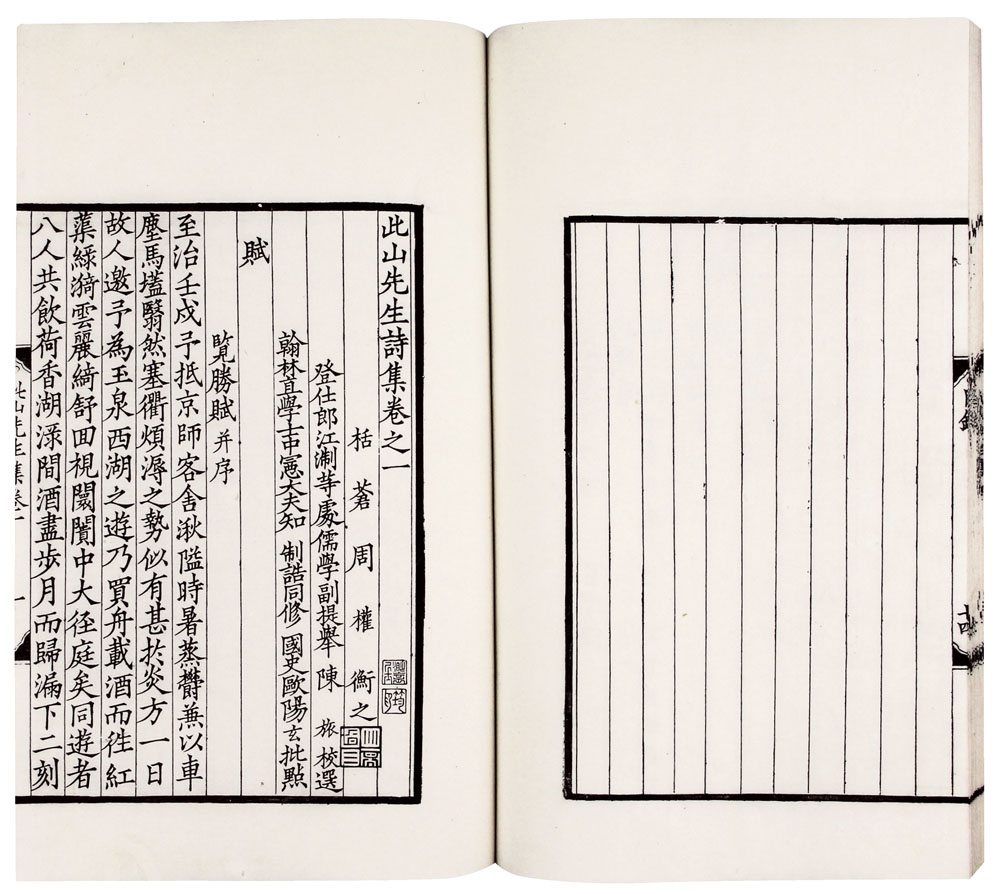 此山先生詩集卷之一
栝蒼周權衡之
登仕郎江淛等處儒學副提舉陳旅校選
翰林直學士中憲大夫知制誥同修國史歐陽玄批點
賦
覽勝賦并序
至治壬戍予抵京師客舍湫隘時暑蒸欝蒸以車
塵馬壒翳然塞衢煩溽之勢似有甚扵炎方一日
故人邀予為玉泉西湖之遊乃買舟載酒而徃紅
蕖綠漪雲麗綺舒回視闤闠中大徑庭矣同遊者
八人共飲荷香湖淥間酒盡步月而歸漏下二刻
此山先生集卷一
一
目錄